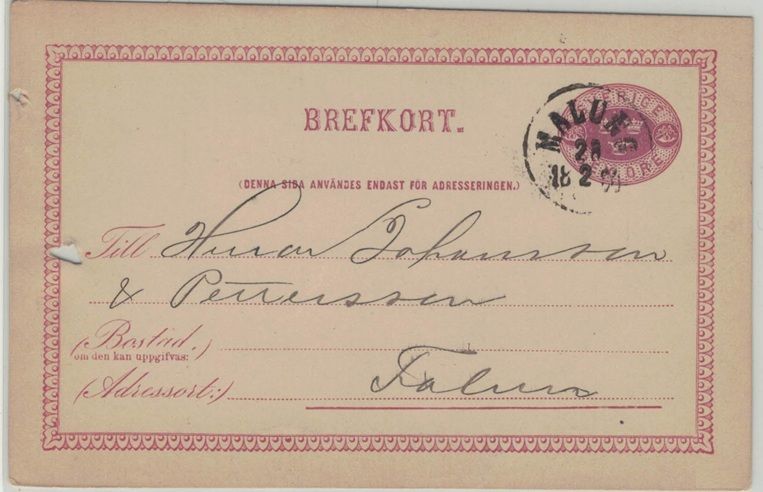 BREFKORT.
MALUNG
28
18 2
SVERIGE
ÖRE
(DENNA SIDA ANVÄNDES ENDAST FÖR ADRESSERINGEN.)
Till Herrar Johansson
& Pettersson
(Bostad.)
om den kan uppgifvas:
(Adressort:) Falun